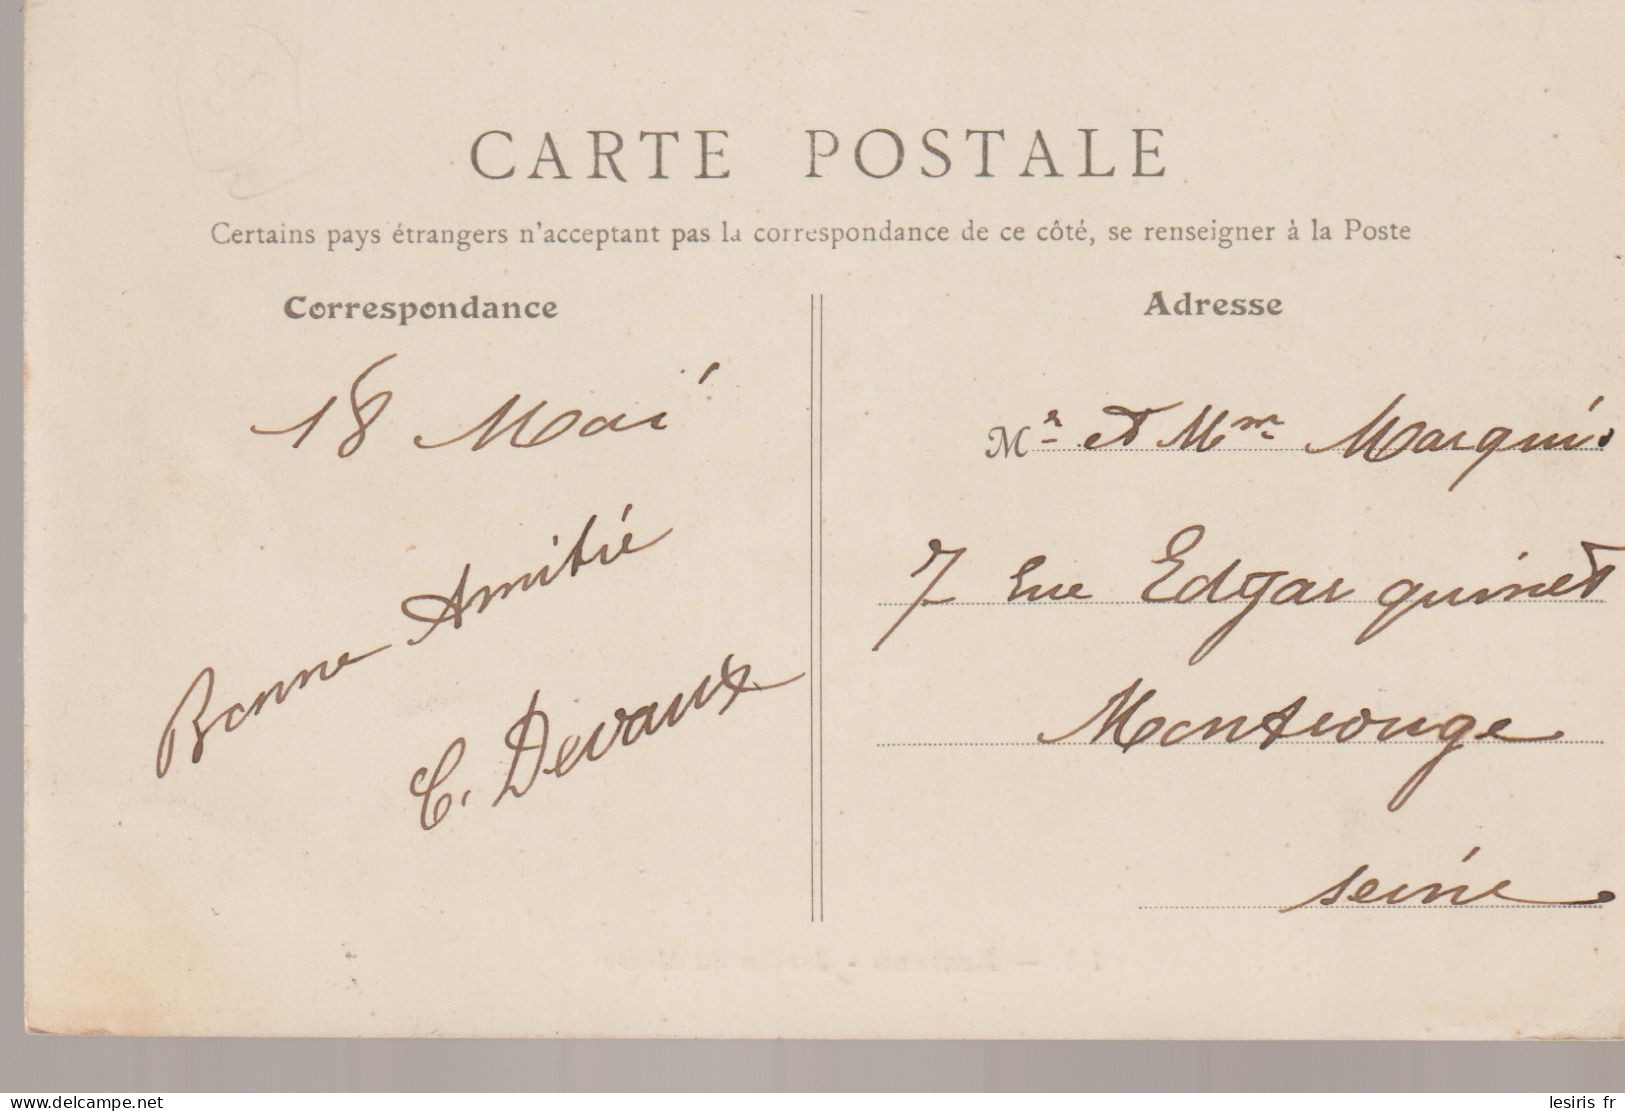 CARTE POSTALE
Certains pays étrangers n'acceptant pas la correspondance de ce côté, se renseigner à la Poste
Correspondance
18 Mai
Bonne Amitié
C. Devaux
Adresse
Mr et Mme Marquis
7 rue Edgar quinet
Montrouge
seine
www.delcampe.net
lesiris fr